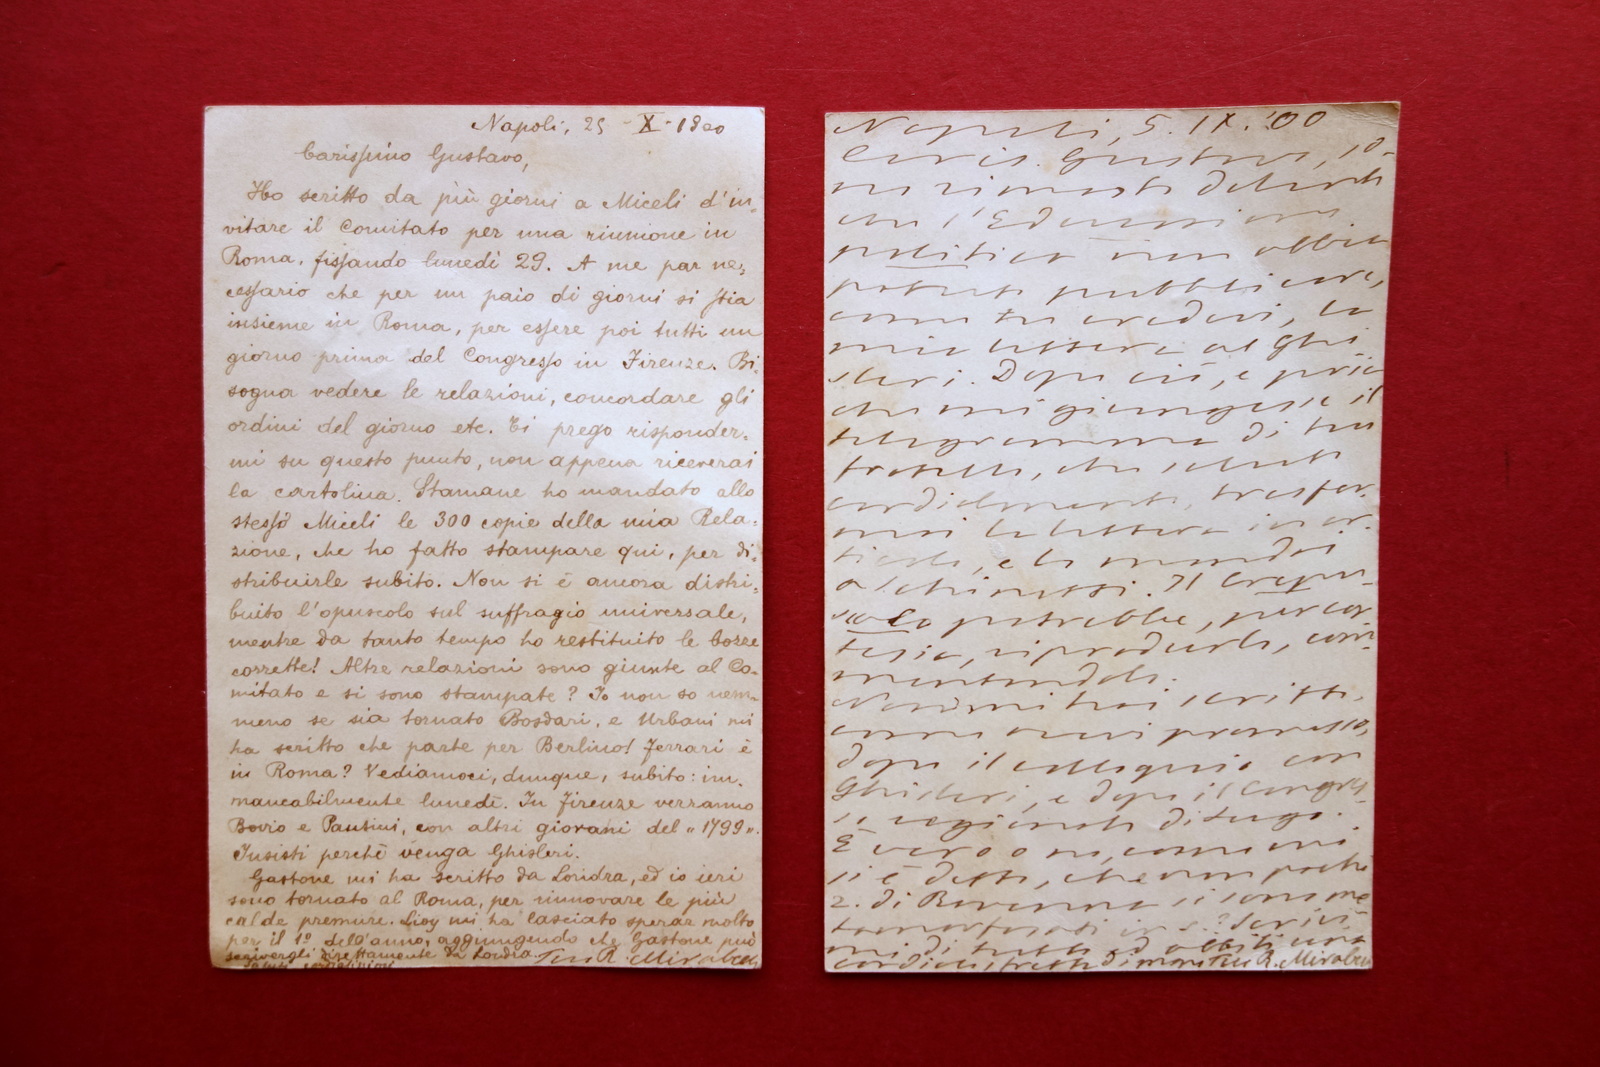 Napoli, 25 X 1900
Carissimo Gustavo,
Ho scritto da più giorni a Miceli d'in-
vitare il Comitato per una riunione in
Roma, fissando lunedì 29. A me par ne-
cessario che per un paio di giorni si stia
insieme in Roma, per essere poi tutti un
giorno prima del Congresso in Firenze. Bi-
sogna vedere le relazioni, concordare gli
ordini del giorno etc. Ti prego risponder-
mi su questo punto, non appena riceverai
la cartolina. Stamane ho mandato allo
stesso Miceli le 300 copie della mia Rela-
zione, che ho fatto stampare qui, per di-
stribuirle subito. Non si è ancora distri-
buito l'opuscolo sul suffragio universale,
mentre da tanto tempo ho restituito le bozze
corrette! Altre relazioni sono giunte al Co-
mitato e si sono stampate? Io non so nem-
meno se sia tornato Bosdari, e Urbani mi
ha scritto che parte per Berlino! Ferrari è
in Roma? Vediamoci, dunque, subito: im-
mancabilmente lunedì. In Firenze verranno
Bovio e Pansini, con altri giovani del "1799".
Insisti perchè venga Ghisleri.
Gastone mi ha scritto da Londra, ed io ieri
sono tornato al Roma, per rinnovare le più
calde premure. Lioy mi ha lasciato sperar molto
per il 1º dell'anno, aggiungendo che Gastone può
scrivergli direttamente da Londra.
Tuo R. Mirabelli
Napoli, 5. IX. '00
Caris. Gustavo, io
con l'Educazione
politica non abbia
potuto pubblicare,
come tu credevi, la
mia lettera al Ghi
sleri. Dopo ciò, e pria
che mi giungesse il
telegramma di tuo
fratello, che saluto
cordialmente, trasfor-
mai la lettera in ar-
ticolo, e lo mandai
a Schinetti. Il Crepu-
scolo potrebbe, per cor
tesia, riprodurlo, com-
mentandolo.
Non mi hai scritto,
come avevi promesso,
dopo il colloquio con
Ghisleri, e dopo il Congres-
so regionale di Lugo.
È vero o no, come mi
si è detto, che un paio
2. di Ravenna si sono me
tamorfosati in? Scrivi-
mi di tutto ed abbiti una
cordiale stretta di mano tuo R. Mirabelli